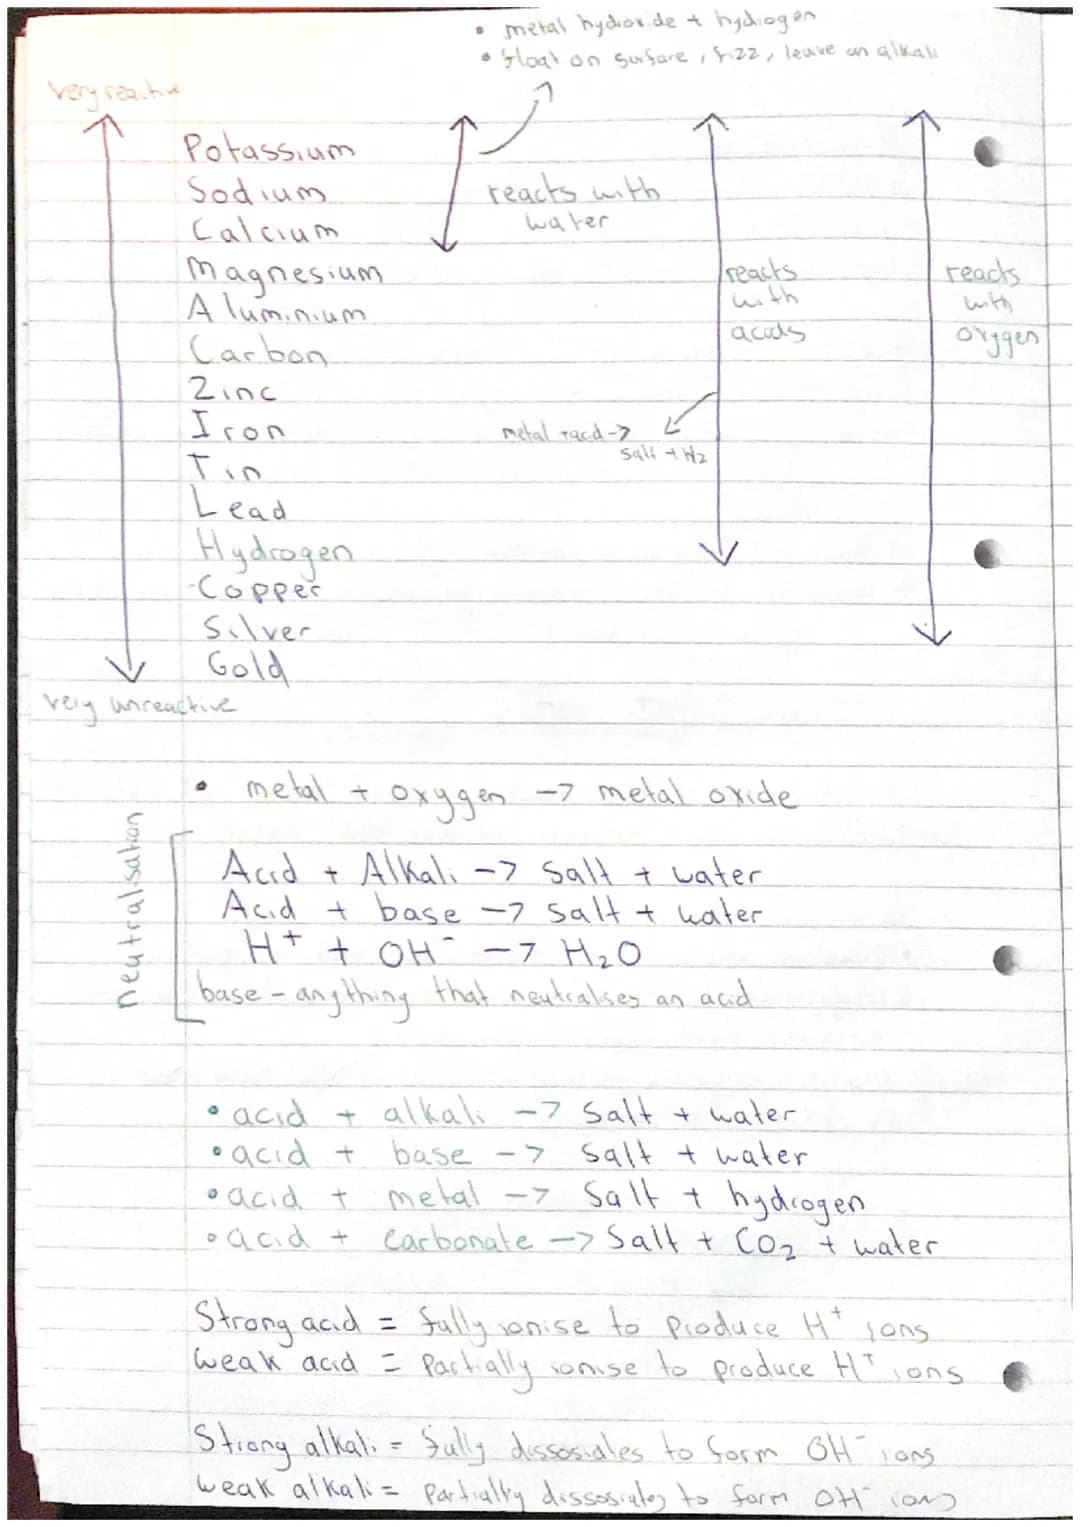 • metal hydroxide + hydrogen
• float on surface, fizz, leave an alkali
very reactive
Potassium
Sodium
Calcium
Magnesium
Aluminium
Carbon
Zinc
Iron
Tin
Lead
Hydrogen
Copper
Silver
Gold
very unreactive
reacts with
water
reacts
with
acids
metal + acid ->
salt + H₂
reacts
with
oxygen
• metal + oxygen -> metal oxide
neutralisation
Acid + Alkali -> Salt + water
Acid + base -> salt + water
H⁺ + OH⁻ -> H₂O
base - anything that neutralises an acid
• acid + alkali -> Salt + water
• acid + base -> Salt + water
• acid + metal -> Salt + hydrogen
• acid + carbonate -> Salt + CO₂ + water
Strong acid = fully ionise to produce H⁺ ions
weak acid = Partially ionise to produce H⁺ ions
Strong alkali = fully dissosiates to form OH⁻ ions
weak alkali = partially dissosiates to form OH⁻ ions